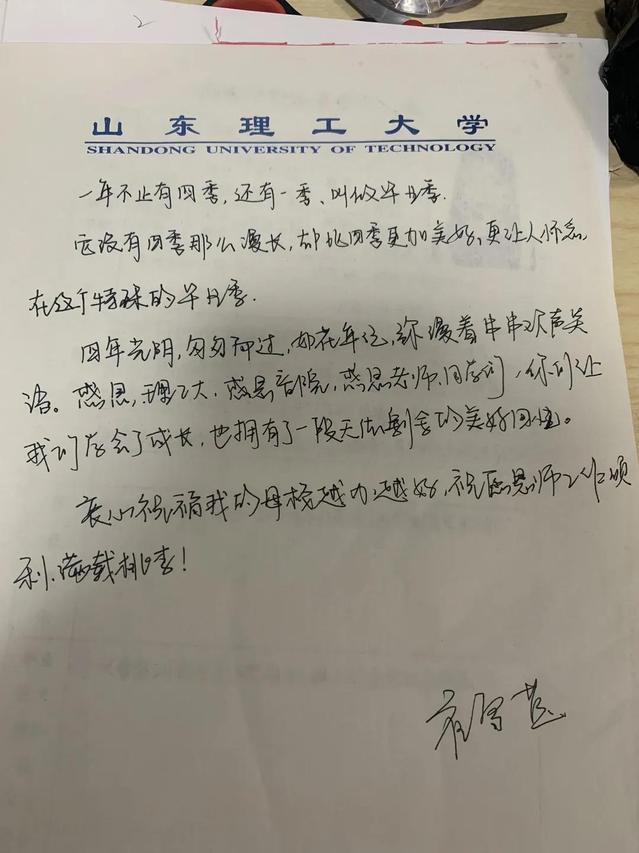 2
山东理工大学
SHANDONG UNIVERSITY OF TECHNOLOGY
一年不止有四季,还有一季、叫做毕业季.
它没有四季那么漫长,却比四季更加美好,更让人怀念,
在这个特殊的毕业季.
四年光阴,匆匆而过,如花年纪,弥漫着串串欢声笑
语。感恩,理工大,感恩音院,感恩老师,同学们,你们让
我们学会了成长,也拥有了一段无法割舍的美好回忆。
衷心祝福我的母校越办越好,祝愿恩师工作顺
利,满载桃李!